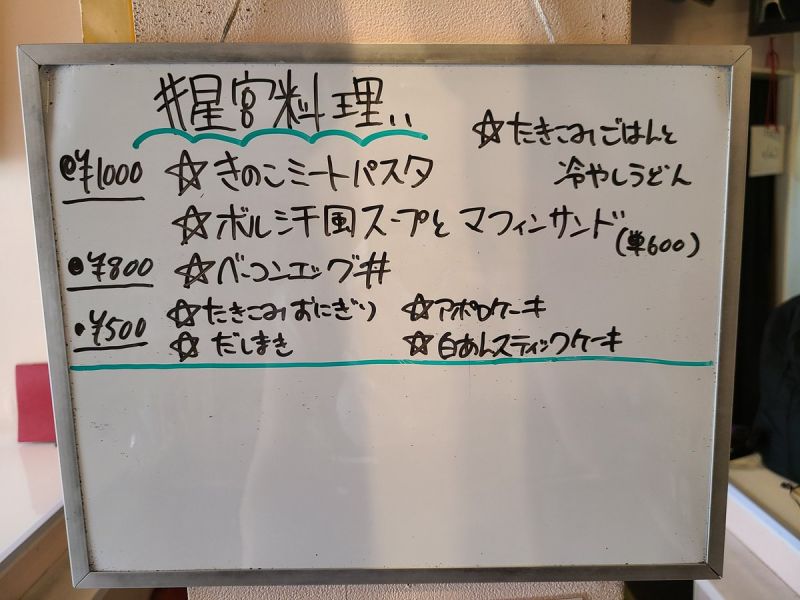 #星宮料理‥
☆たきこみごはんと
冷やしうどん
●¥1000 ☆きのこミートパスタ
☆ボルシ汁風スープと マフィンサンド
(単600)
●¥800 ☆ベーコンエッグ丼
●¥500 ☆たきこみおにぎり ☆アポロケーキ
☆だしまき ☆白あんスティックケーキ